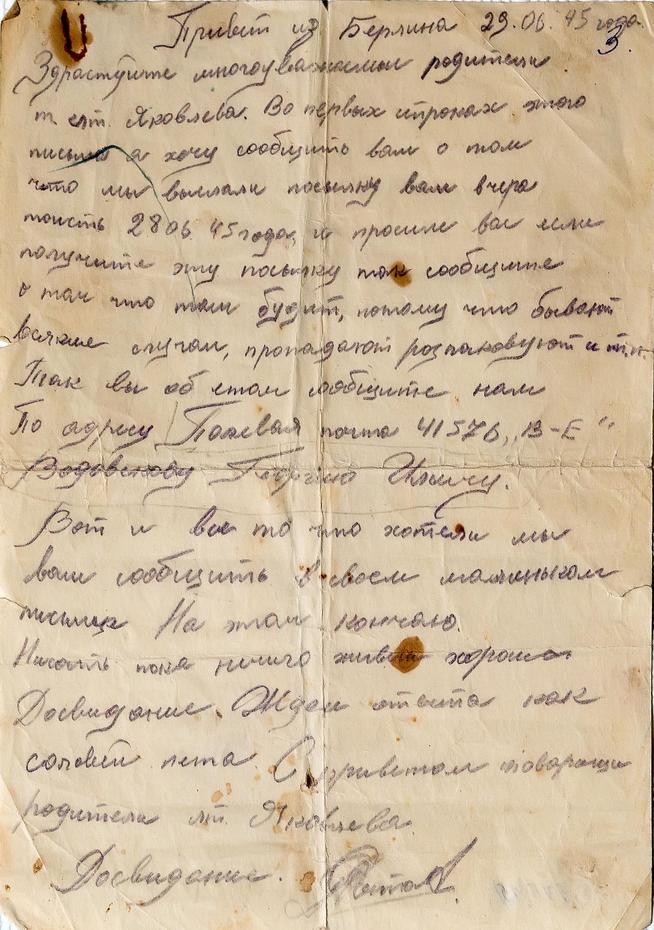 Привет из Берлина 29.06.45 года
3.
Здраствуйте многоуважаемыи родители
т. лт. Яковлева. Во первых строках этого
письма я хочу сообщить вам о том
что мы выслали посылку вам вчера
тоисть 28 06 45 года, и просим вас если
получите эту посылку так сообщите
о том что там будит, потому что бывают
всякие случаи, пропадают розпаковуют и т.п.
Так вы об етом сообщите нам
По адресу Полевая почта 41576 „В-Е"
Георгию Ильичу.
Вот и все то что хотели мы
вам сообщить в своем маленьком
письмце На этом кончаю.
Писать пока ничиго живем хорошо
Досвидание. Ждем ответа как
соловей лета. С приветом товарищи
родители лт. Яковлева.
Досвидание.